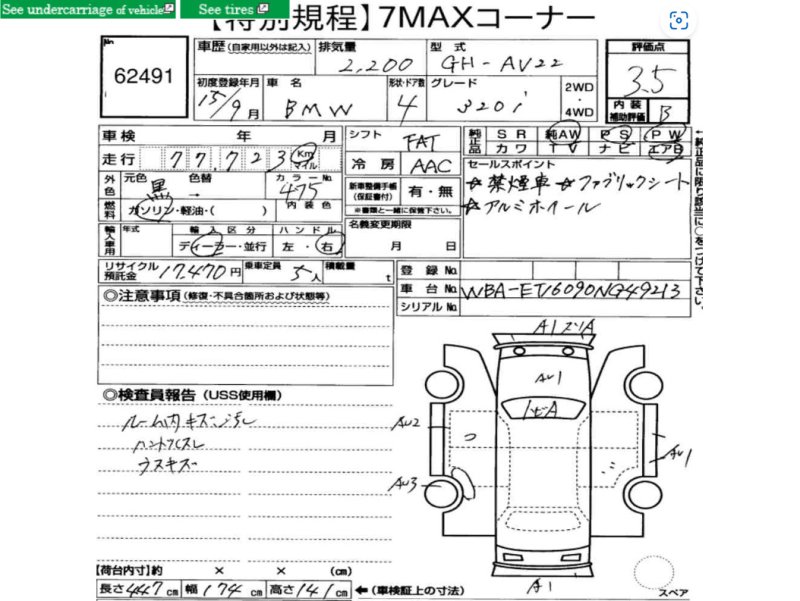 See undercarriage of vehicle
See tires
【特別規程】7MAXコーナー
No
62491
車歴(自家用以外は記入)
排気量
2,200
型式
GH-AV22
評価点
3.5
初度登録年月
15/9月
車名
BMW
形状・ドア数
4
グレード
320i
2WD
・
4WD
内装
補助評価
B
車検 年 月
シフト
FAT
純正品
SR 純AW PS PW
カワ TV ナビ エアB
走行
77,723
Km
マイル
冷房
AAC
セールスポイント
☆禁煙車 ☆ファブリックシート
☆アルミホイール
外色
元色
黒
色替
→
カラーNo
475
新車整備手帳
(保証書付)
有・無
※書類と一緒に保管下さい。
燃料
ガソリン・軽油・( )
内装色
名義変更期限
月 日
輸入車用
年式
輸入区分
ディーラー・並行
ハンドル
左・右
←純正品に限り該当に○をつけて下さい。
リサイクル
預託金
17,470円
乗車定員
5人
積載量
t
登録No.
車台No.
WBA-ET76090NG49213
シリアルNo.
◎注意事項(修復・不具合箇所および状態等)
A1
AU1
AU2
AU3
AU1
A1
◎検査員報告(USS使用欄)
ルーム内キズ・汚レ
ハンドルスレ
ウスキズ
【荷台内寸】約 × × (cm)
長さ447cm 幅174cm 高さ141cm ←(車検証上の寸法)
スペア